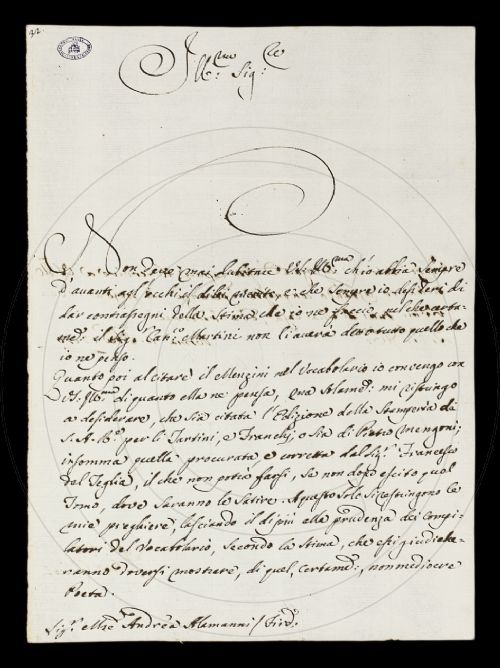 32.
Ill.mo Sig.re
Non deve mai dubitare V.S. Ill.ma ch'io abbia sempre
d'avanti agl'occhi il di lei merito, e che sempre io desideri di
dar contrasegni della stima che io ne faccio, nel che certa-
m.e il Sig. Can.co Martini non li avarà detto tutto quello che
io ne penso.
Quanto poi al citare il Menzini nel Vocabolario io convengo con
V.S. Ill.ma di quanto ella ne pensa, ma solam.e mi ristringo
a desiderare, che sia citata l'Edizione della Stamperia di
S.A.R. per li Tartini, e Franchi, o sia di Pietro Mengoni,
insomma quella procurata, e corretta dal Sig. Francesco
del Teglia, il che non potrò farsi, se non dopo escito quel
Tomo, dove saranno le Satire. A questo solo si ristringono le
mie preghiere, lasciando il di più alla prudenza dei Compi-
latori del Vocabolario, secondo la stima, che essi giudiche-
ranno doversi mostrare, di quel, certam.e, non mediocre
Poeta.
Sig.r Andrea Alamanni / Fir.e